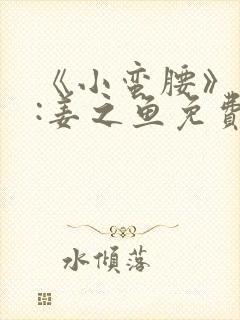 《小蛮腰》
:姜之鱼免费
水倾落